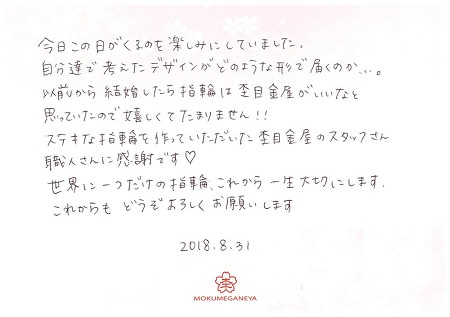 今日この日がくるのを楽しみにしていました.
自分達で考えたデザインがどのような形で届くのか…。
以前から結婚したら指輪は杢目金屋がいいなと
思っていたので嬉しくてたまりません!!
ステキな指輪を作っていただいた杢目金屋のスタッフさん
職人さんに感謝です♡
世界に一つだけの指輪、これから一生大切にします.
これからも どうぞよろしくお願いします
2018.8.31
MOKUMEGANEYA